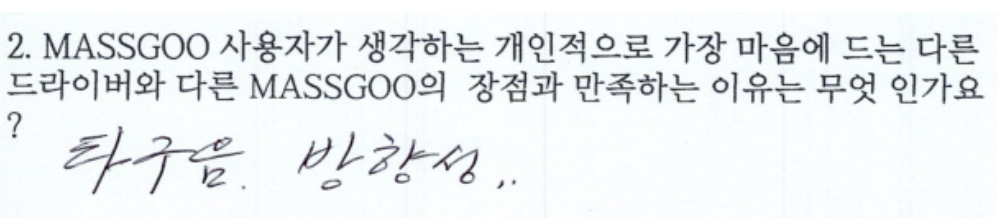 2. MASSGOO 사용자가 생각하는 개인적으로 가장 마음에 드는 다른
드라이버와 다른 MASSGOO의 장점과 만족하는 이유는 무엇 인가요
?
타구음. 방향성..